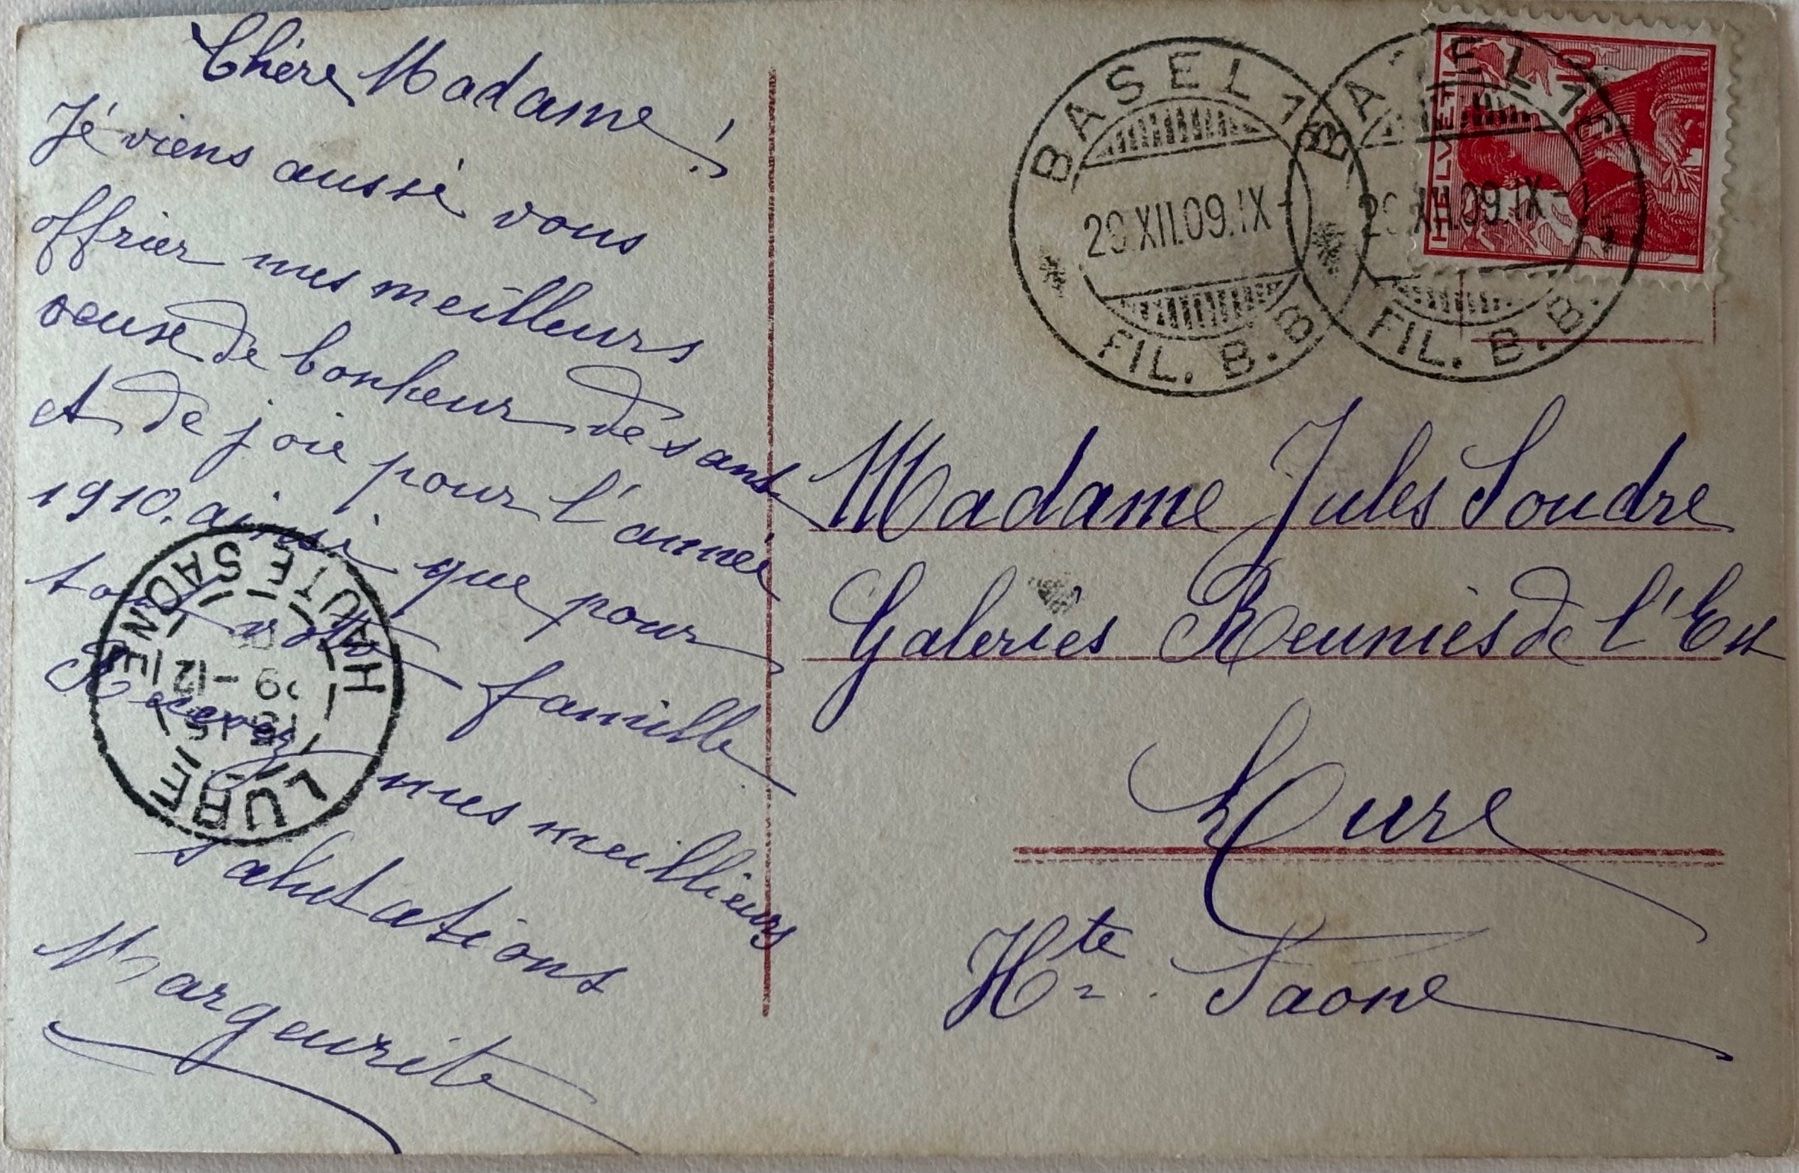 Chère Madame !
Jé viens aussi vous
offrier mes meilleurs
de bonheur de sant
et de joie pour l'année
1910. ainsi que pour
tout votre famille
Recevez mes meillieurs
salutations
Margeurite
BASEL 15
29 XII.09.IX-
FIL. B.B.
BASEL 15
29 XII.09.IX-
FIL. B.B.
HELVETIA
10
Madame Jules Soudre
Galeries Reunies de l'Est
Lure
Hte. Saone
LURE
HAUTE SAONE
-12
09